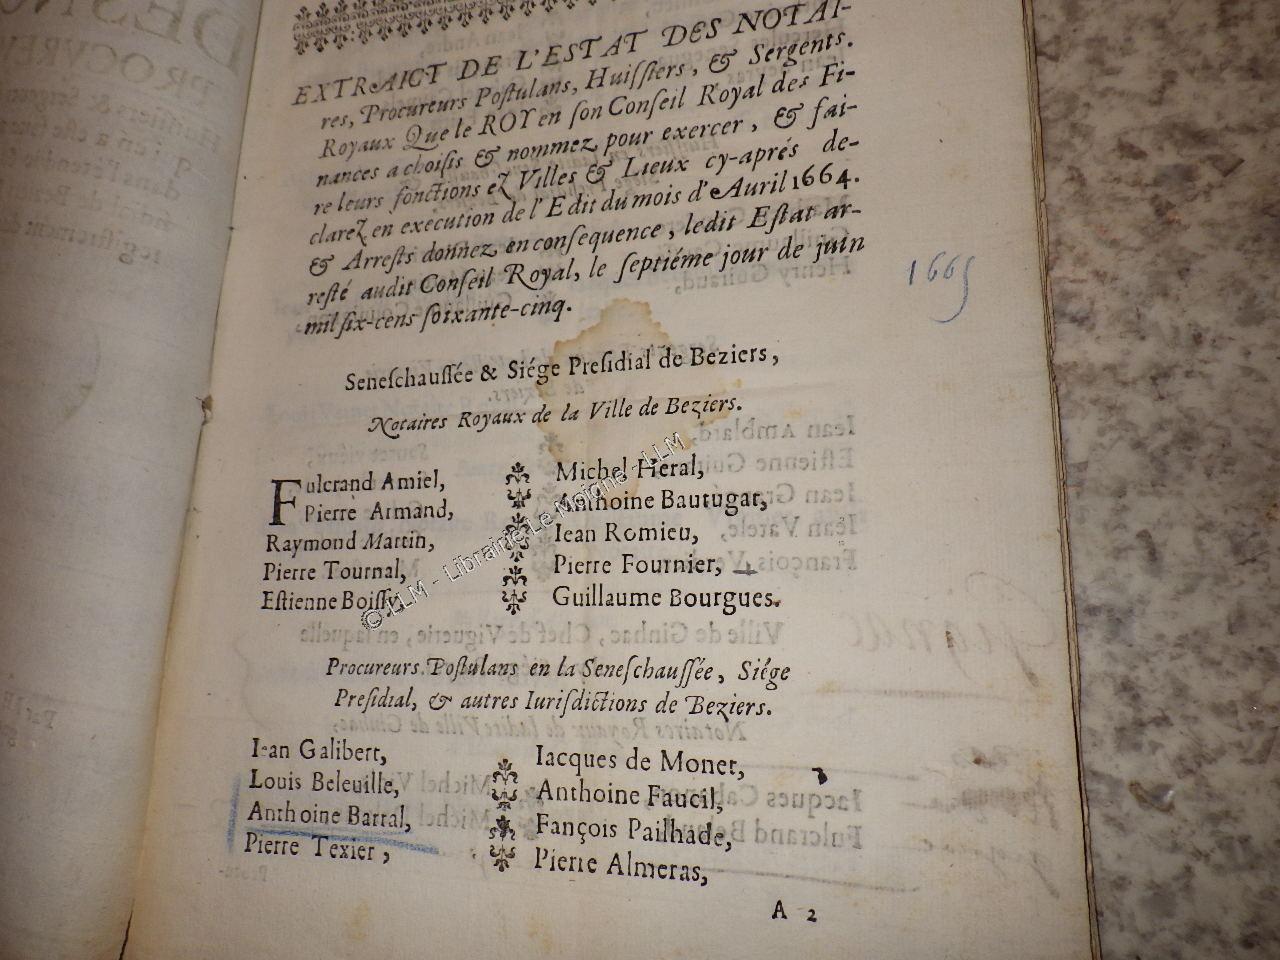 EXTRAICT DE L'ESTAT DES NOTAI-
res, Procureurs Poſtulans, Huiſſiers, & Sergents.
Royaux Que le ROY en ſon Conſeil Royal des Fi-
nances a choiſis & nommez pour exercer, & fai-
re leurs fonctions ez Villes & Lieux cy-aprés de-
clarez en execution de l'Edit du mois d'Auril 1664.
& Arreſts donnez en conſequence, ledit Eſtat ar-
reſté audit Conſeil Royal, le ſeptiéme jour de juin
mil ſix-cens ſoixante-cinq.
1665
Seneſchauſſée & Siége Preſidial de Beziers,
Notaires Royaux de la Ville de Beziers.
Fulcrand Amiel,
Pierre Armand,
Raymond Martin,
Pierre Tournal,
Eſtienne Boiſſy,
Michel Heral,
Anthoine Bautugat,
Iean Romieu,
Pierre Fournier,
Guillaume Bourgues.
Procureurs Poſtulans en la Seneſchauſſée, Siége
Preſidial, & autres Iuriſdictions de Beziers.
Iean Galibert,
Louis Beleuille,
Anthoine Barral,
Pierre Texier,
Iacques de Monet,
Anthoine Faucil,
Fançois Pailhade,
Pierre Almeras,
A 2
© LLM - Librairie Le Moigne - LLM